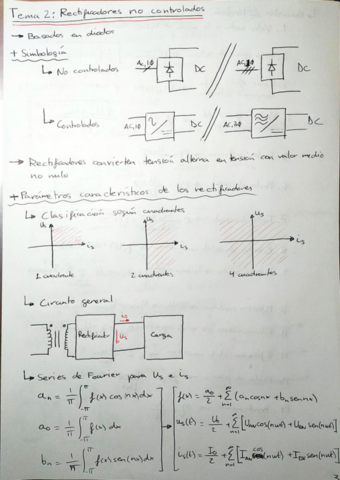 Tema 2: Rectificadores no controlados
→ Basados en diodos
+ Simbología
↳ No controlados AC,1Φ DC // AC,3Φ DC
↳ Controlados AC,1Φ DC // AC,3Φ DC
→ Rectificadores convierten tensión alterna en tensión con valor medio
no nulo
+ Parámetros característicos de los rectificadores
↳ Clasificación según cuadrantes
u₃ u₃ u₃
i₃ i₃ i₃
1 cuadrante 2 cuadrantes 4 cuadrantes
↳ Circuito general
Rectificador Carga
↳ Series de Fourier para u₃ e i₃
aₙ = 1/π ∫_{-π}^{π} f(x) cos(nx) dx
f(x) = a₀/2 + Σ_{n=1}^{∞} (aₙ cos nx + bₙ sen nx)
a₀ = 1/π ∫_{-π}^{π} f(x) dx
bₙ = 1/π ∫_{-π}^{π} f(x) sen(nx) dx